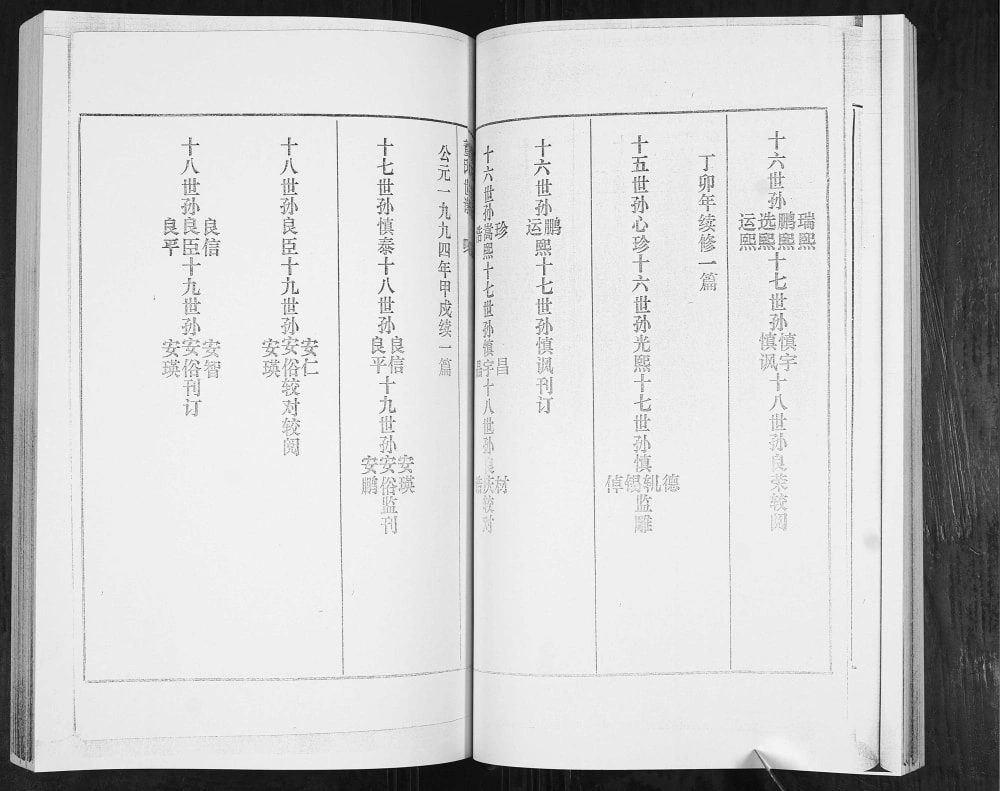 十六世孙瑞熙鹏熙选熙运熙十七世孙慎宇慎讽十八世孙良荣较阅
丁卯年续修一篇
十五世孙心珍十六世孙光熙十七世孙慎德轧锡倬监雕
十六世孙鹏运熙十七世孙慎讽刊订
十六世孙珍嵩熙十七世孙慎昌宇十八世孙良材庆较对
公元一九九四年甲戍续一篇
十七世孙慎泰十八世孙良信良平十九世孙安瑛安俗安鹏监刊
十八世孙良臣十九世孙安仁安俗安瑛较对较阅
十八世孙良信良臣良平十九世孙安智安俗安瑛刊订